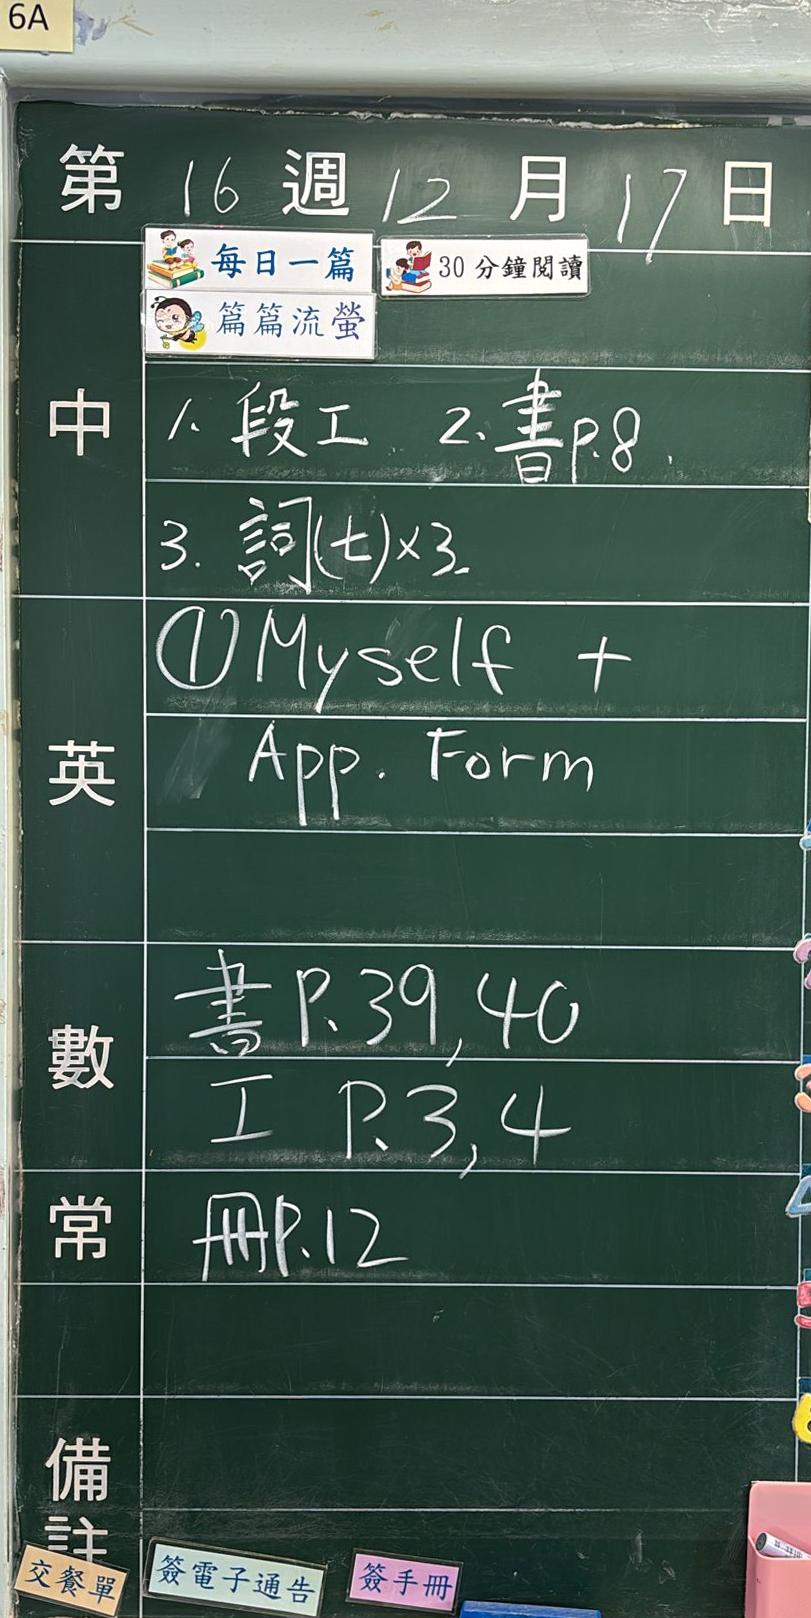 6A
第 16 週 12 月 17 日
每日一篇 30分鐘閱讀
篇篇流螢
中
1. 段工 2. 書P.8.
3. 詞(七)×3.
英
① Myself +
App. Form
數
書 P.39,40
工 P.3,4
常
冊P.12
備註
交餐單 簽電子通告 簽手冊